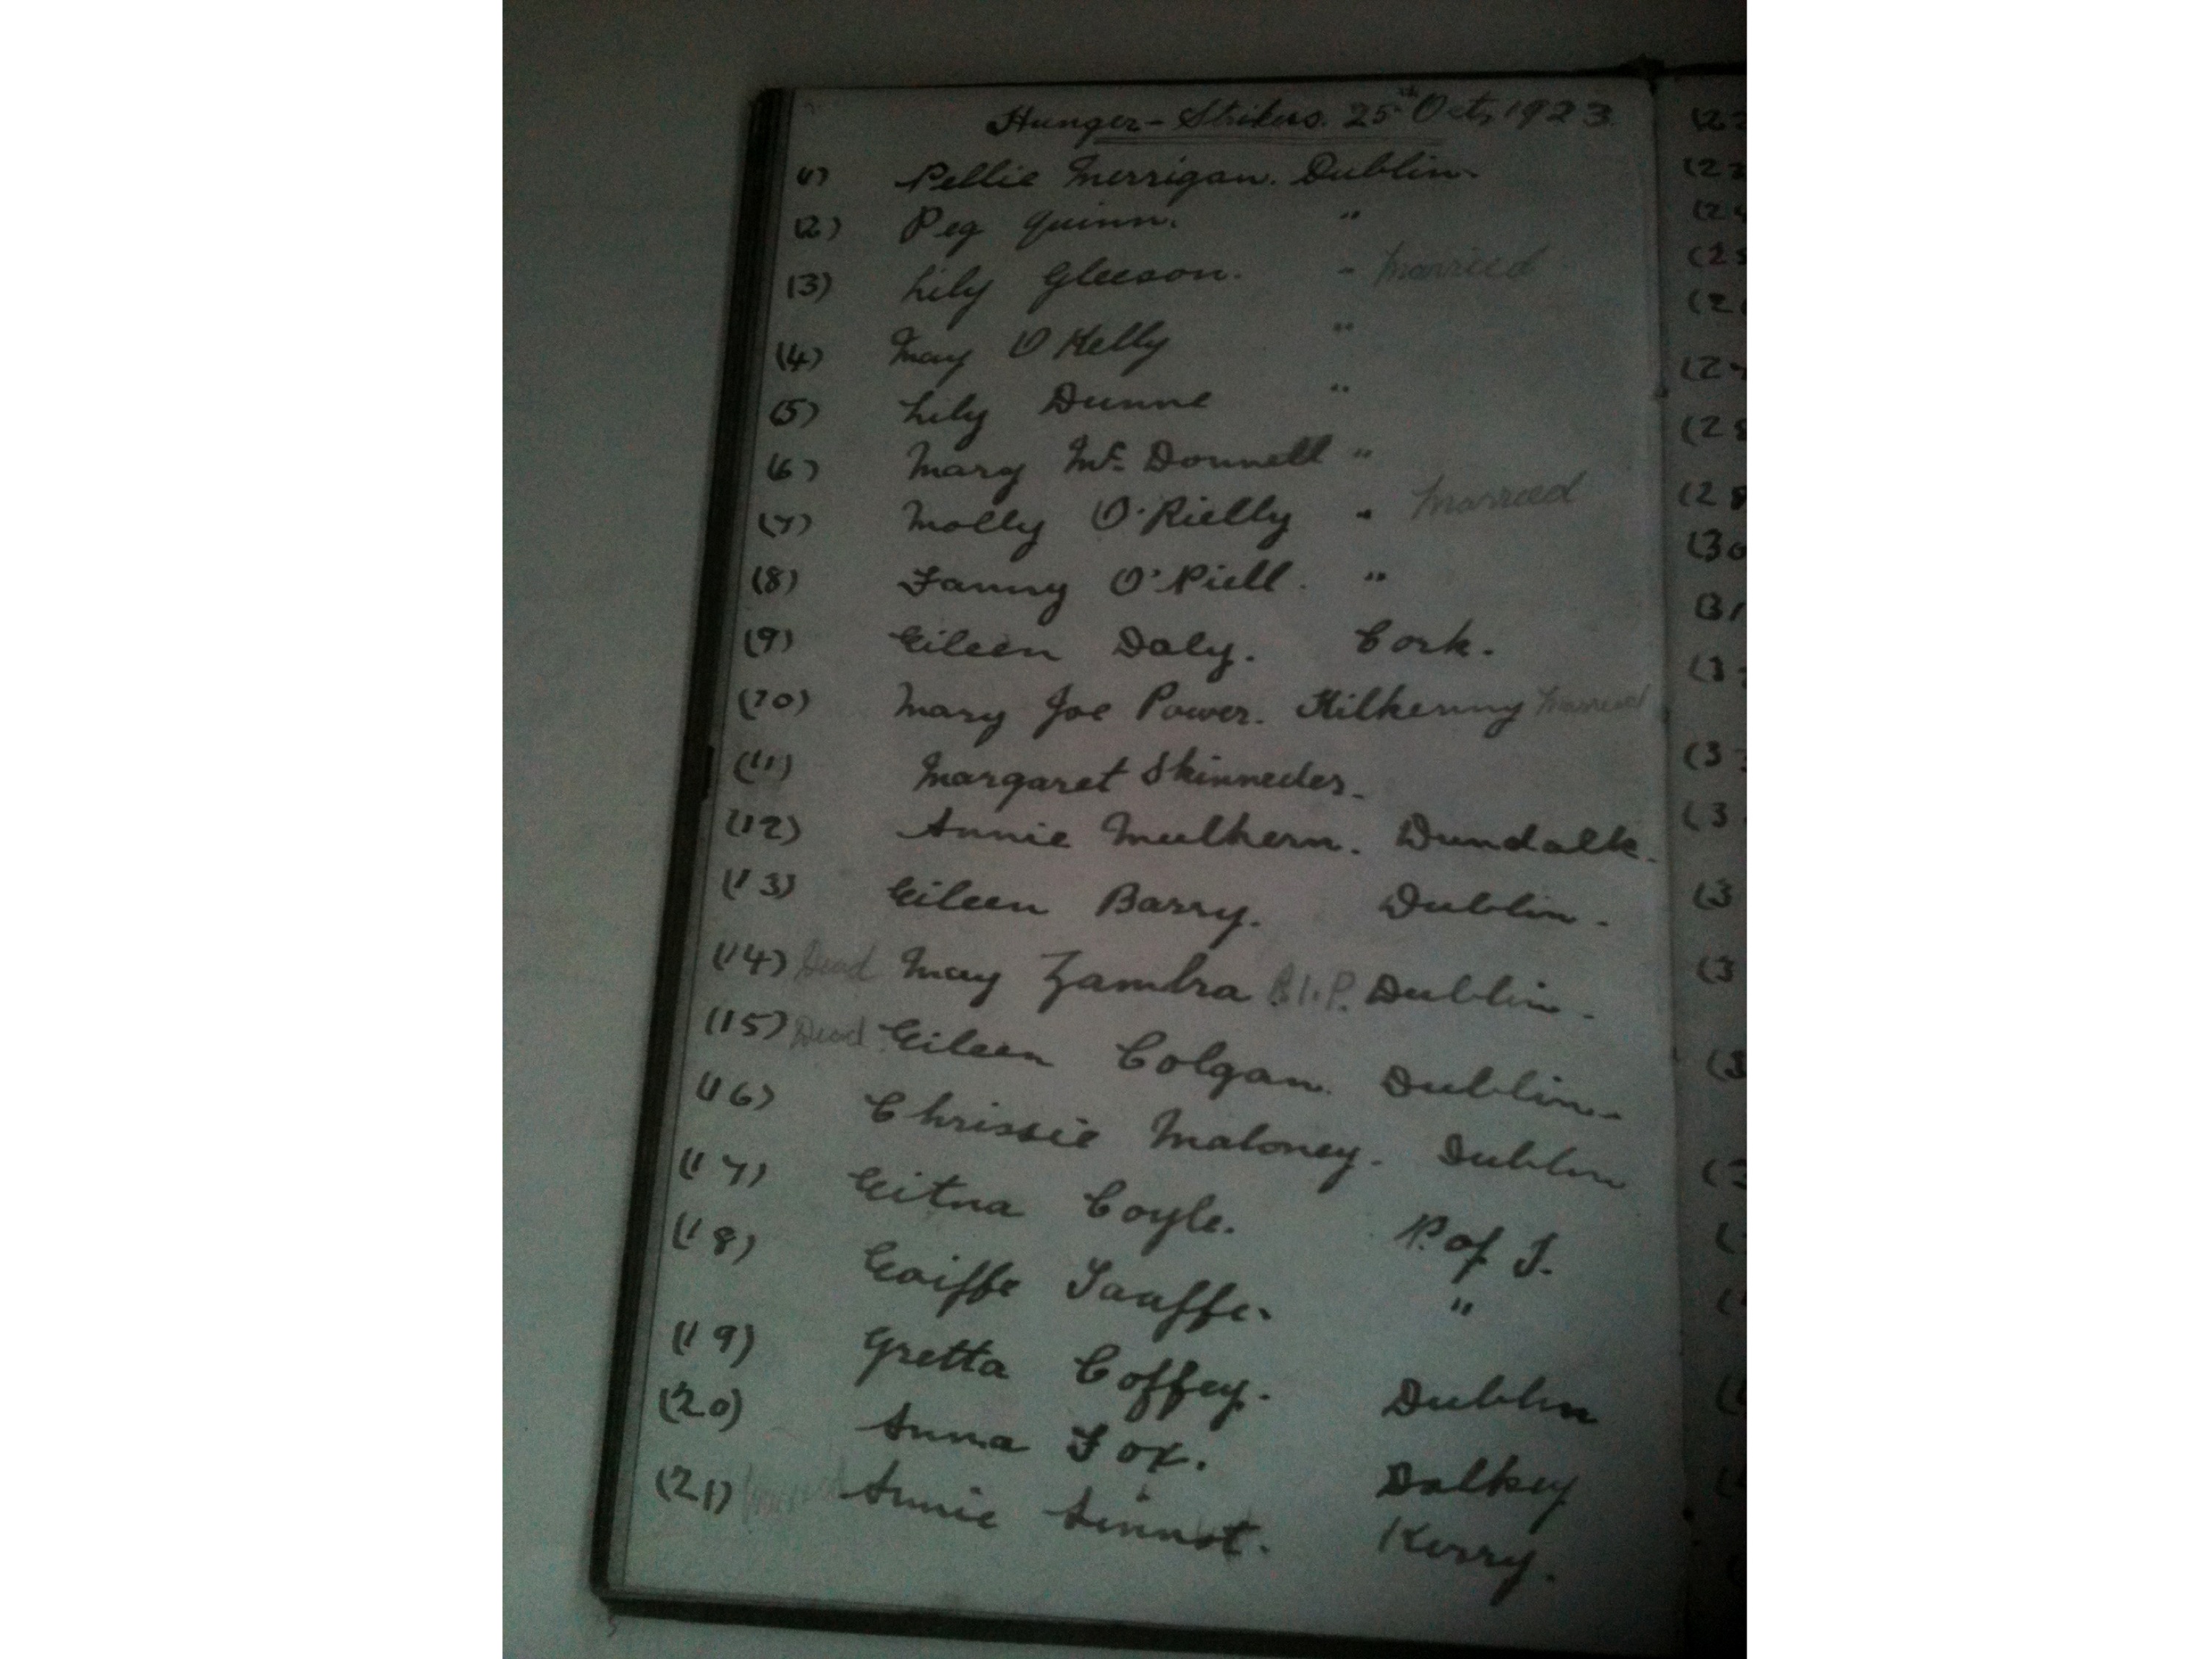 Hunger-Strikers. 25th Oct, 1923
(1) Nellie Merrigan. Dublin.
(2) Peg Quinn. "
(3) Lily Gleeson. " Married
(4) May O Kelly "
(5) Lily Dunne "
(6) Mary Mc Donnell "
(7) Molly O'Rielly " Married
(8) Fanny O'Niell. "
(9) Eileen Daly. Cork.
(10) Mary Joe Power. Kilkenny Married
(11) Margaret Skinneder.
(12) Annie Mulhern. Dundalk.
(13) Eileen Barry. Dublin.
(14) Dead May Zambra R.I.P. Dublin.
(15) Dead Eileen Colgan. Dublin.
(16) Chrissie Maloney. Dublin
(17) Eitna Coyle. P. of I.
(18) "
(19) Gretta Coffey. Dublin
(20) Anna Fox. Dalkey
(21) Married Annie Sinnot. Kerry.